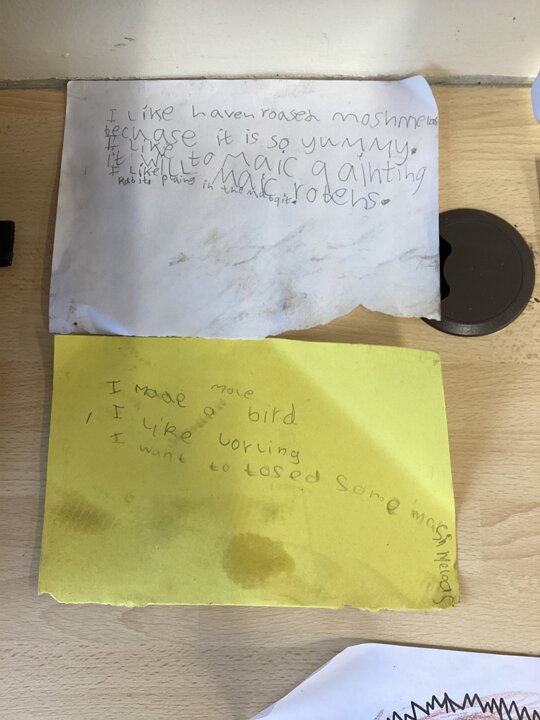 I Like haven roased moshmelos
becuase it is so yummy.
I Like to maic a painting
it will maic rotens.
I Like
Rabits plaing in the
I made move
I Like a bird
I want to tosed some mashmeloas